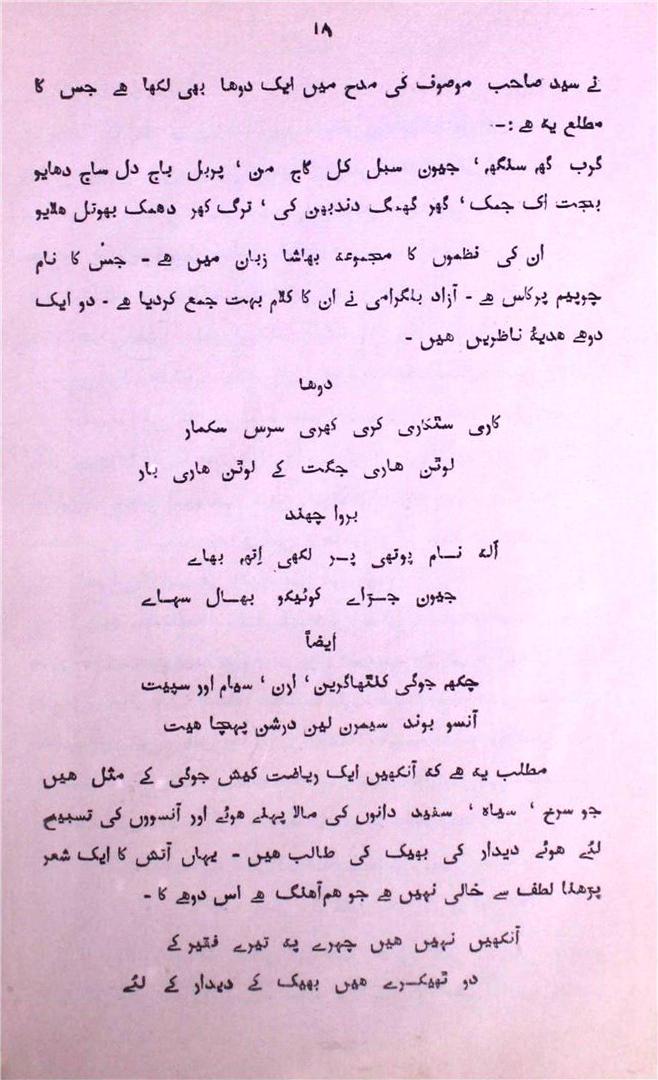 ۱۸
نے سید صاحب موصوف کی مدح میں ایک دوھا بھی لکھا ھے جس کا
مطلع یہ ھے :-
گرب گھہ سنگھہ ' جیون سبل کل گاج من ' پربل باج دل ساج دھایو
بجت اک جمک ' گھر گھمگ دندبھن کی ' ترگ کھر دھمک بھوتل ھلایو
ان کی نظموں کا مجموعہ بھاشا زبان میں ھے - جس کا نام
چوپیم پرکاس ھے - آزاد بلگرامی نے ان کا کلام بہت جمع کردیا ھے - دو ایک
دوھے ھدیۂ ناظرین ھیں -
دوھا
کاری سٹکاری کری کھری سرس سکمار
لوٹن ھاری جگت کے لوٹن ھاری بار
بروا چھند
آلہ نام پوتھی پر لکھی اتھہ بھاے
جیون جڑاے کوٹیکو بھال سہاے
ایضاً
چکھہ جوگی کنٹھاگرین ' ارن ' سیام اور سپیت
آنسو بوند سیمرن لین درشن پہچا ھیت
مطلب یہ ھے کہ آنکھیں ایک ریاضت کیش جوگی کے مثل ھیں
جو سرخ ' سیاہ ' سفید دانوں کی مالا پہنے ھوئے اور آنسووں کی تسبیح
لئے ھوئے دیدار کی بھیک کی طالب ھیں - یہاں آتش کا ایک شعر
پڑھنا لطف سے خالی نہیں ھے جو ھم آھنگ ھے اس دوھے کا -
آنکھیں نہیں ھیں چہرے پہ تیرے فقیر کے
دو ٹھیکرے ھیں بھیک کے دیدار کے لئے